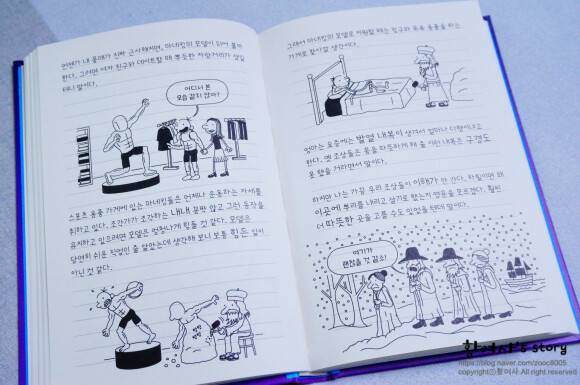 언젠가 내 몸매가 진짜 근사해지면, 마네킹의 모델이 되어 볼까
한다. 그러면 여자 친구와 데이트할 때 뿌듯한 자랑거리가 생길
테니 말이다.
어디서 본
모습 같지 않아?
스포츠 용품 가게에 있는 마네킹들은 언제나 운동하는 자세를
취하고 있다. 조각가가 조각하는 내내 꼼짝 않고 그런 동작을
유지하고 있으려면 모델은 엄청나게 힘들 것 같다. 모델은
당연히 쉬운 직업인 줄 알았는데 생각해 보니 보통 힘든 일이
아닌 것 같다.
그래서 마네킹의 모델로 지원할 때는 침구와 목욕 용품을 파는
가게로 찾아갈 생각이다.
엄마는 요즘에는 발열 내복이 생겨서 얼마나 다행이냐고
한다. 옛 조상들은 몸을 따뜻하게 해 줄 이런 내복은 구경도
못 했을 거라면서 말이다.
하지만 나는 가끔 우리 조상들이 이해가 안 간다. 하필이면 왜
이곳에 뿌리를 내리고 살기로 했는지 영문을 모르겠다. 훨씬
더 따뜻한 곳을 고를 수도 있었을 텐데 말이다.
여기가
괜찮을 것 같소!
's story
https://blog.naver.com/zooc8005
copyrightⓒ황여사 All right reserved